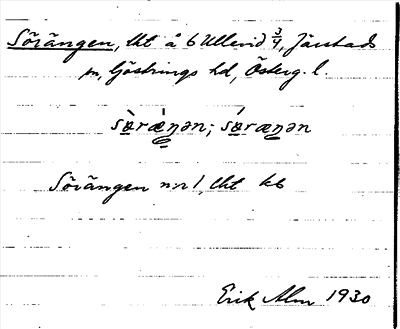 Sörängen, tkt å 6 Ullevid 3/4, Järstads
sn, Göstrings hd, Österg. l.
sɐ̀ràeŋən; sɐ́raeŋən
Sörängen nr 1, tkt kb
Erik Alm 1930